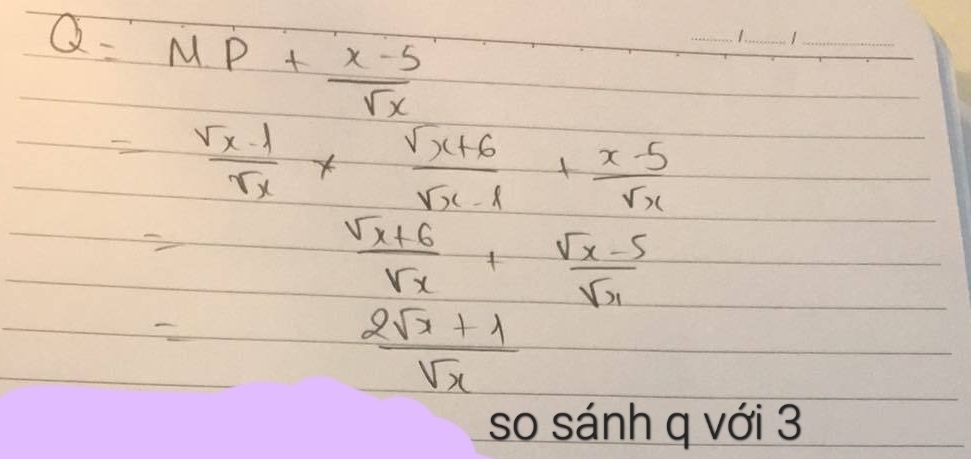 Q = M.P + (x - 5)/√x
= (√x - 1)/√x × (√x + 6)/(√x - 1) + (x - 5)/√x
= (√x + 6)/√x + (√x - 5)/√x
= (2√x + 1)/√x
so sánh q với 3